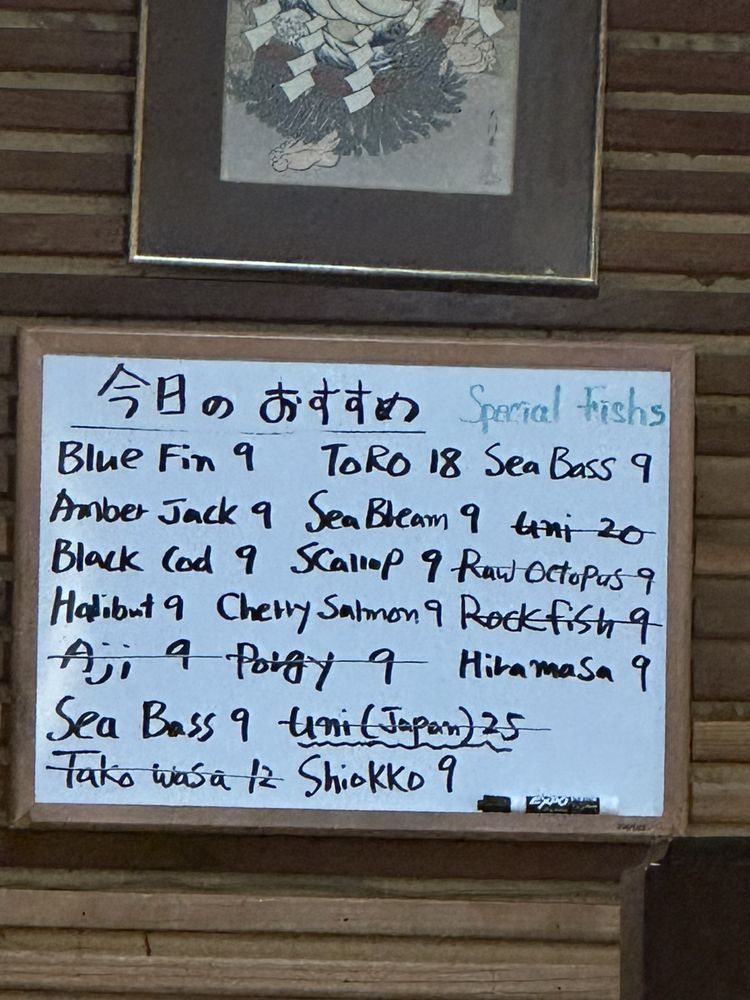 今日の おすすめ Special Fishs
Blue Fin 9 ToRo 18 Sea Bass 9
Amber Jack 9 Sea Bleam 9 Uni 20
Black Cod 9 Scallop 9 Raw Octopus 9
Halibut 9 Cherry Salmon 9 Rockfish 9
Aji 9 Porgy 9 Hiramasa 9
Sea Bass 9 Uni (Japan) 25
Tako wasa 12 Shiokko 9
EXPO